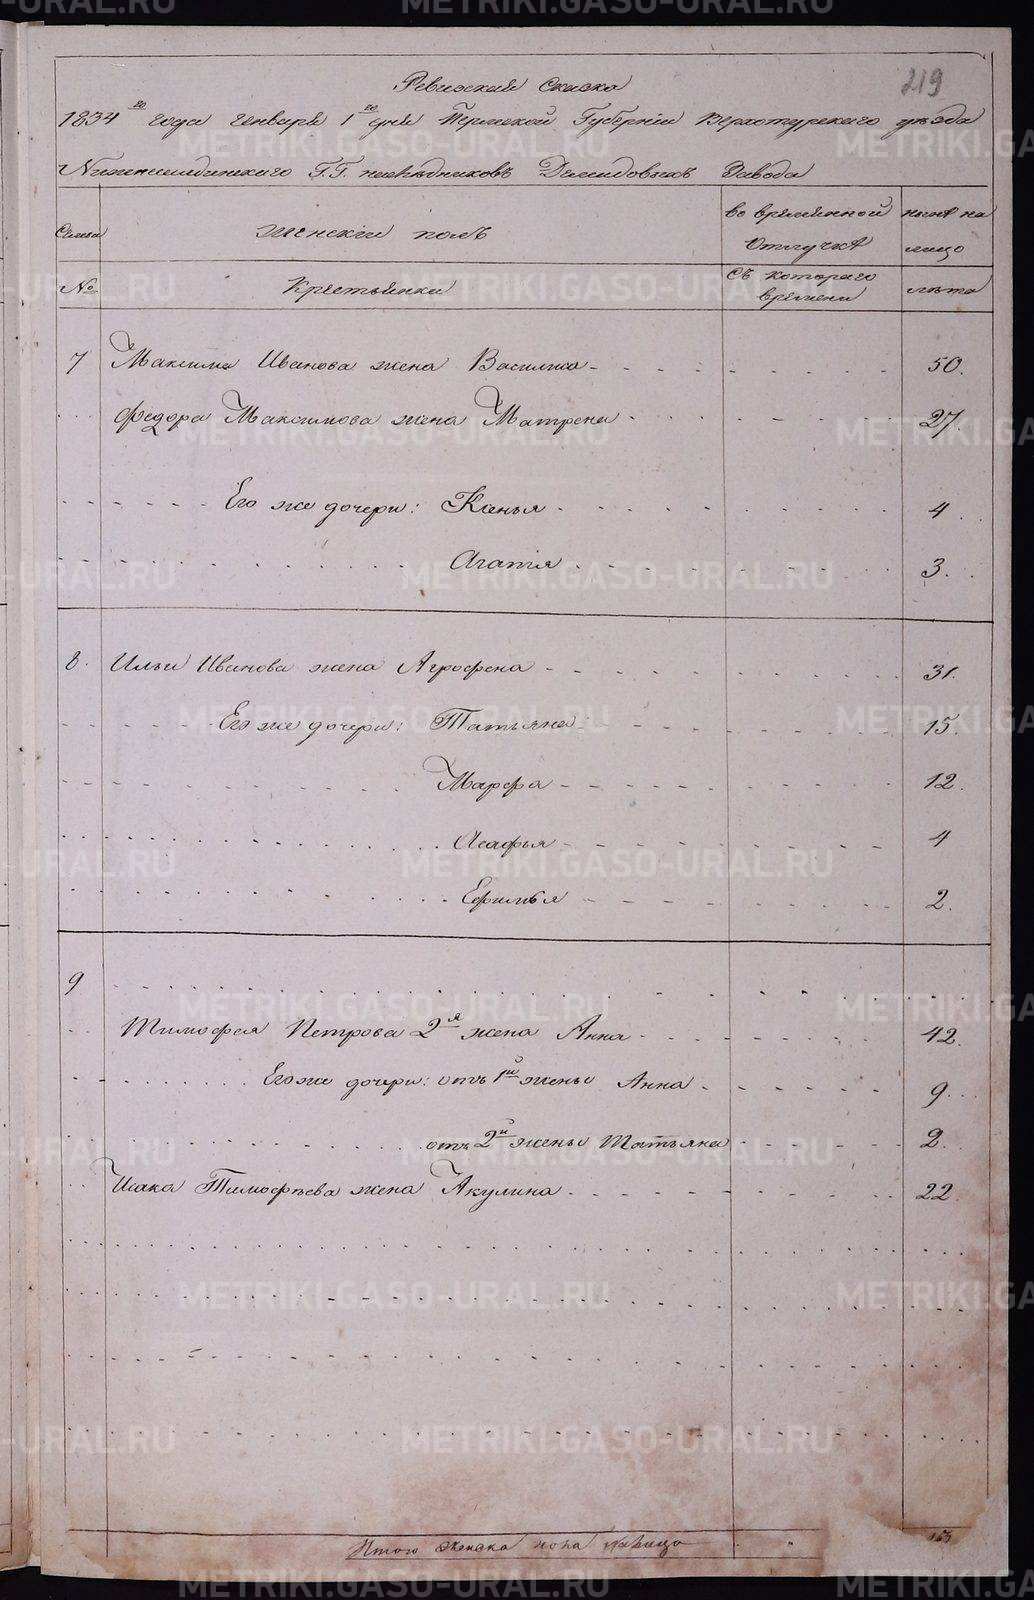 219
Ревизская Сказка
1834го года Генваря 1го дня Пермской Губернiи Верхотурскаго уезда
Нижнесалдинскаго Г.Г. наследниковъ Демидовыхъ Завода
Семьи
Женскiй полъ
во временной отлучкѣ
нынѣ на лицо
№
Крестьянки
съ котораго времени
лѣта
7 Максима Иванова жена Василиса 50.
Федора Максимова жена Матрена 27.
Его же дочери: Ксенья 4
Агапiя 3.
8. Ильи Иванова жена Агрофена 31.
Его же дочери: Татьяна 15.
Марфа 12.
Агафья 4
Ефимья 2.
9
Тимофея Петрова 2я жена Анна 42.
Его же дочери: отъ 1й жены Анна 9.
отъ 2й жены Татьяна 2.
Исака Тимофѣева жена Акулина 22.
Итого женска пола налицо
METRIKI.GASO-URAL.RU